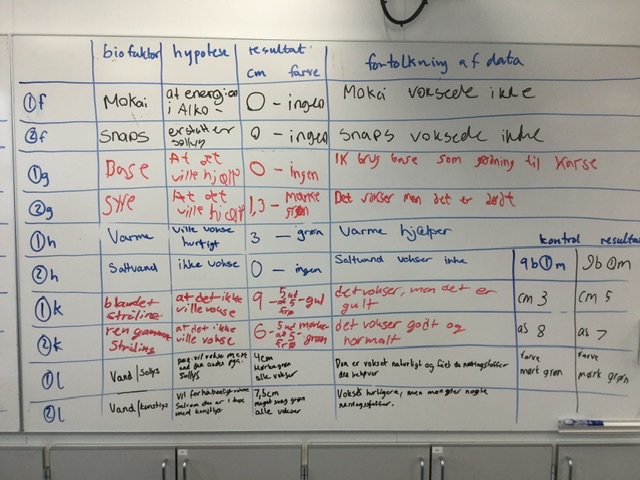 biofaktor hypotese resultat fortolkning af data
cm farve
①f Mokai at energien i Alko- 0 - ingen Mokai voksede ikke
②f snaps erstatter sollys 0 - ingen snaps voksede ikke
①g Base At det ville hjælpe 0 - ingen IK brug base som gødning til karse
②g syre At det ville hjælpe 1,3 - mørke grøn Det vokser men det er dødt
①h Varme ville vokse hurtigt 3 - grøn Varme hjælper
②h Saltvand ikke vokse 0 - ingen Saltvand vokser ikke
①k blandet stråling at det ikke ville vokse 9 - 5 ud af 5 frø - gul det vokser, men det er gult
②k ren gamma Stråling at det ikke ville vokse 6 - 5 ud af 5 frø mørke - grøn det vokser godt og normalt
①l Vand/Sollys sollys 4cm alle vokser Den er vokset naturligt og fået de næringsstoffer den behøver
②l Vand/kunstlys 7,5cm meget svag grøn alle vokser Vokset hurtigere, men mangler nogle næringsstoffer.
kontrol resultat
9b①m 9b①m
cm 3 cm 5
as 8 as 7
farve mørk grøn farve mørk grøn